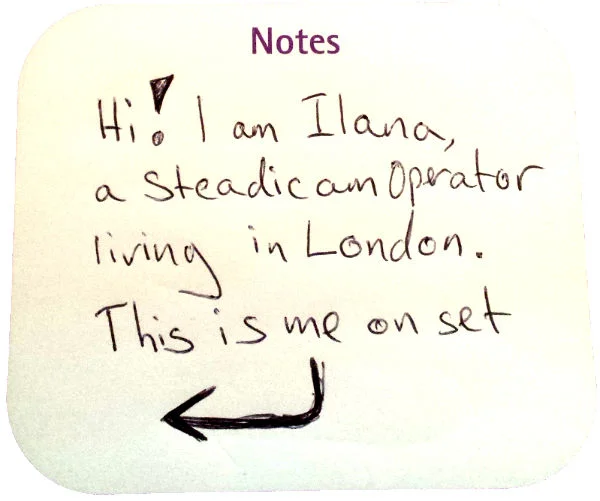 Notes
Hi! I am Ilana,
a Steadicam Operator
living in London.
This is me on set